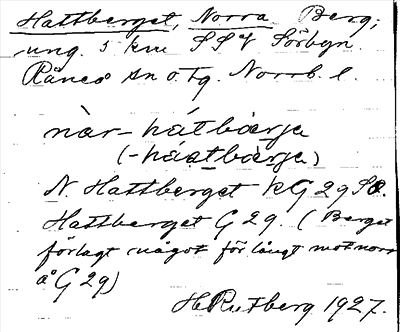 Hattberget, Norra Berg;
ung. 5 km SSV Sörbyn.
Råneå sn o. tg. Norrb. l.
nàr-hátbàrja
(-hástbàrja)
N. Hattberget kG 29 SO.
Hattberget G 29. (Berget
förlagt något för långt mot norr
å G 29)
H Rutberg 1927.